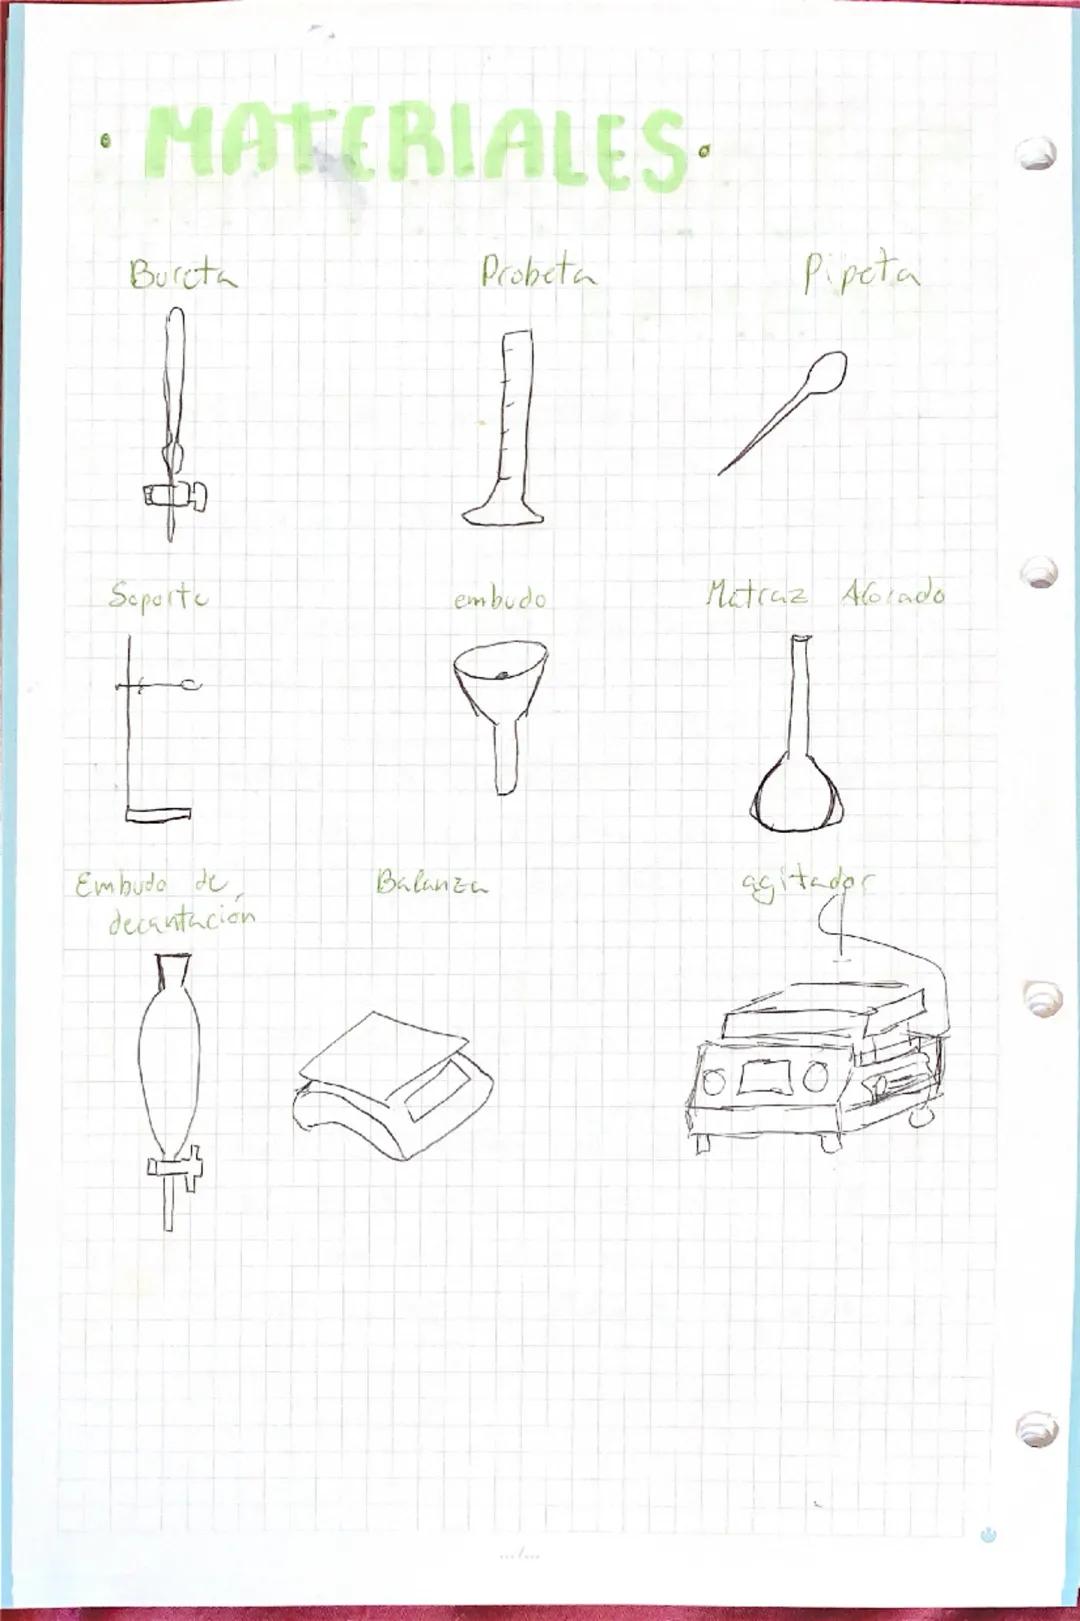 • MATERIALES •
Bureta
Probeta
Pipeta
Soporte
embudo
Matraz Aforado
Embudo de
decantación
Balanza
agitador